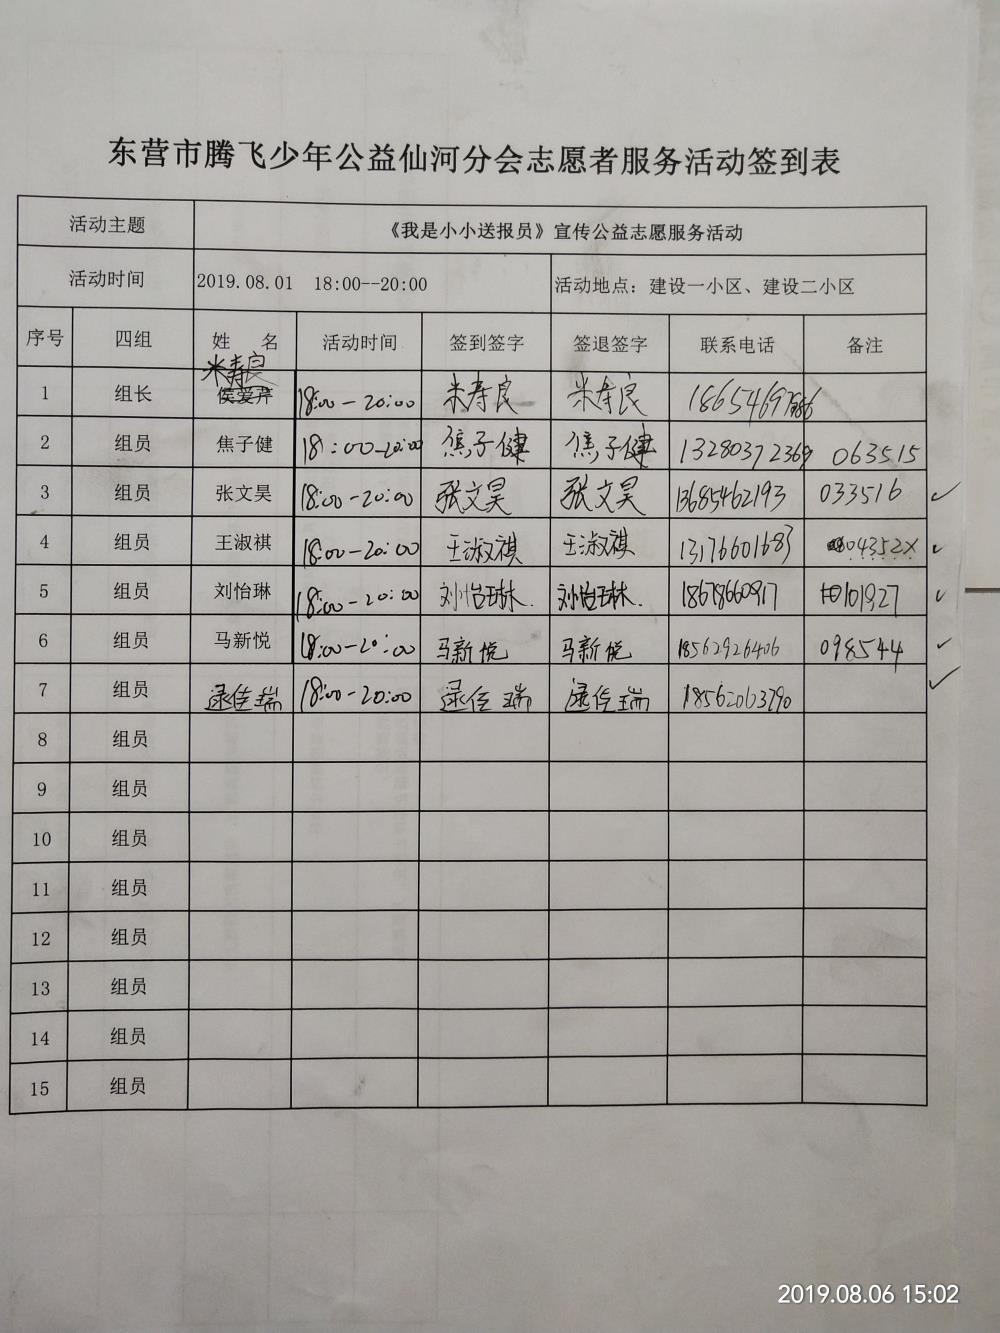 东营市腾飞少年公益仙河分会志愿者服务活动签到表
活动主题 《我是小小送报员》宣传公益志愿服务活动
活动时间 2019.08.01 18:00--20:00 活动地点：建设一小区、建设二小区
序号 四组 姓 名 活动时间 签到签字 签退签字 联系电话 备注
米寿良
1 组长 侯爱芹 18:00-20:00 米寿良 米寿良
2 组员 焦子健 18:00-20:00 焦子健 焦子健 13280372369 063515
3 组员 张文昊 18:00-20:00 张文昊 张文昊 13685462193 033516 ✓
4 组员 王淑祺 18:00-20:00 王淑祺 王淑祺 13176601683 04352X ✓
5 组员 刘怡琳 18:00-20:00 刘怡琳. 刘怡琳. 18678660917 101927 ✓
6 组员 马新悦 18:00-20:00 马新悦 马新悦 18562926406 098544 ✓
7 组员 逯佳瑞 18:00-20:00 逯佳瑞 逯佳瑞 18562063790 ✓
8 组员
9 组员
10 组员
11 组员
12 组员
13 组员
14 组员
15 组员
2019.08.06 15:02